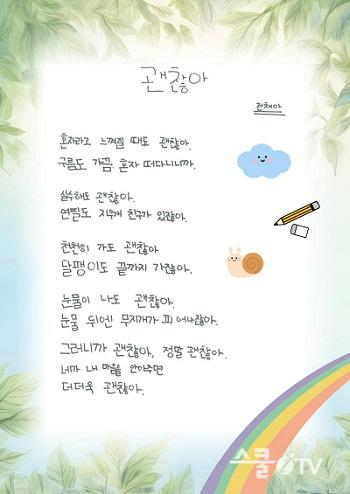 괜찮아
전채아
혼자라고 느껴질 때도 괜찮아.
구름도 가끔 혼자 떠다니니까.
실수해도 괜찮아.
연필도 지우개 친구가 있잖아.
천천히 가도 괜찮아
달팽이도 끝까지 가잖아.
눈물이 나도 괜찮아.
눈물 뒤엔 무지개가 피어나잖아.
그러니까 괜찮아, 정말 괜찮아.
네가 내 마음을 안아주면
더더욱 괜찮아.
스쿨iTV